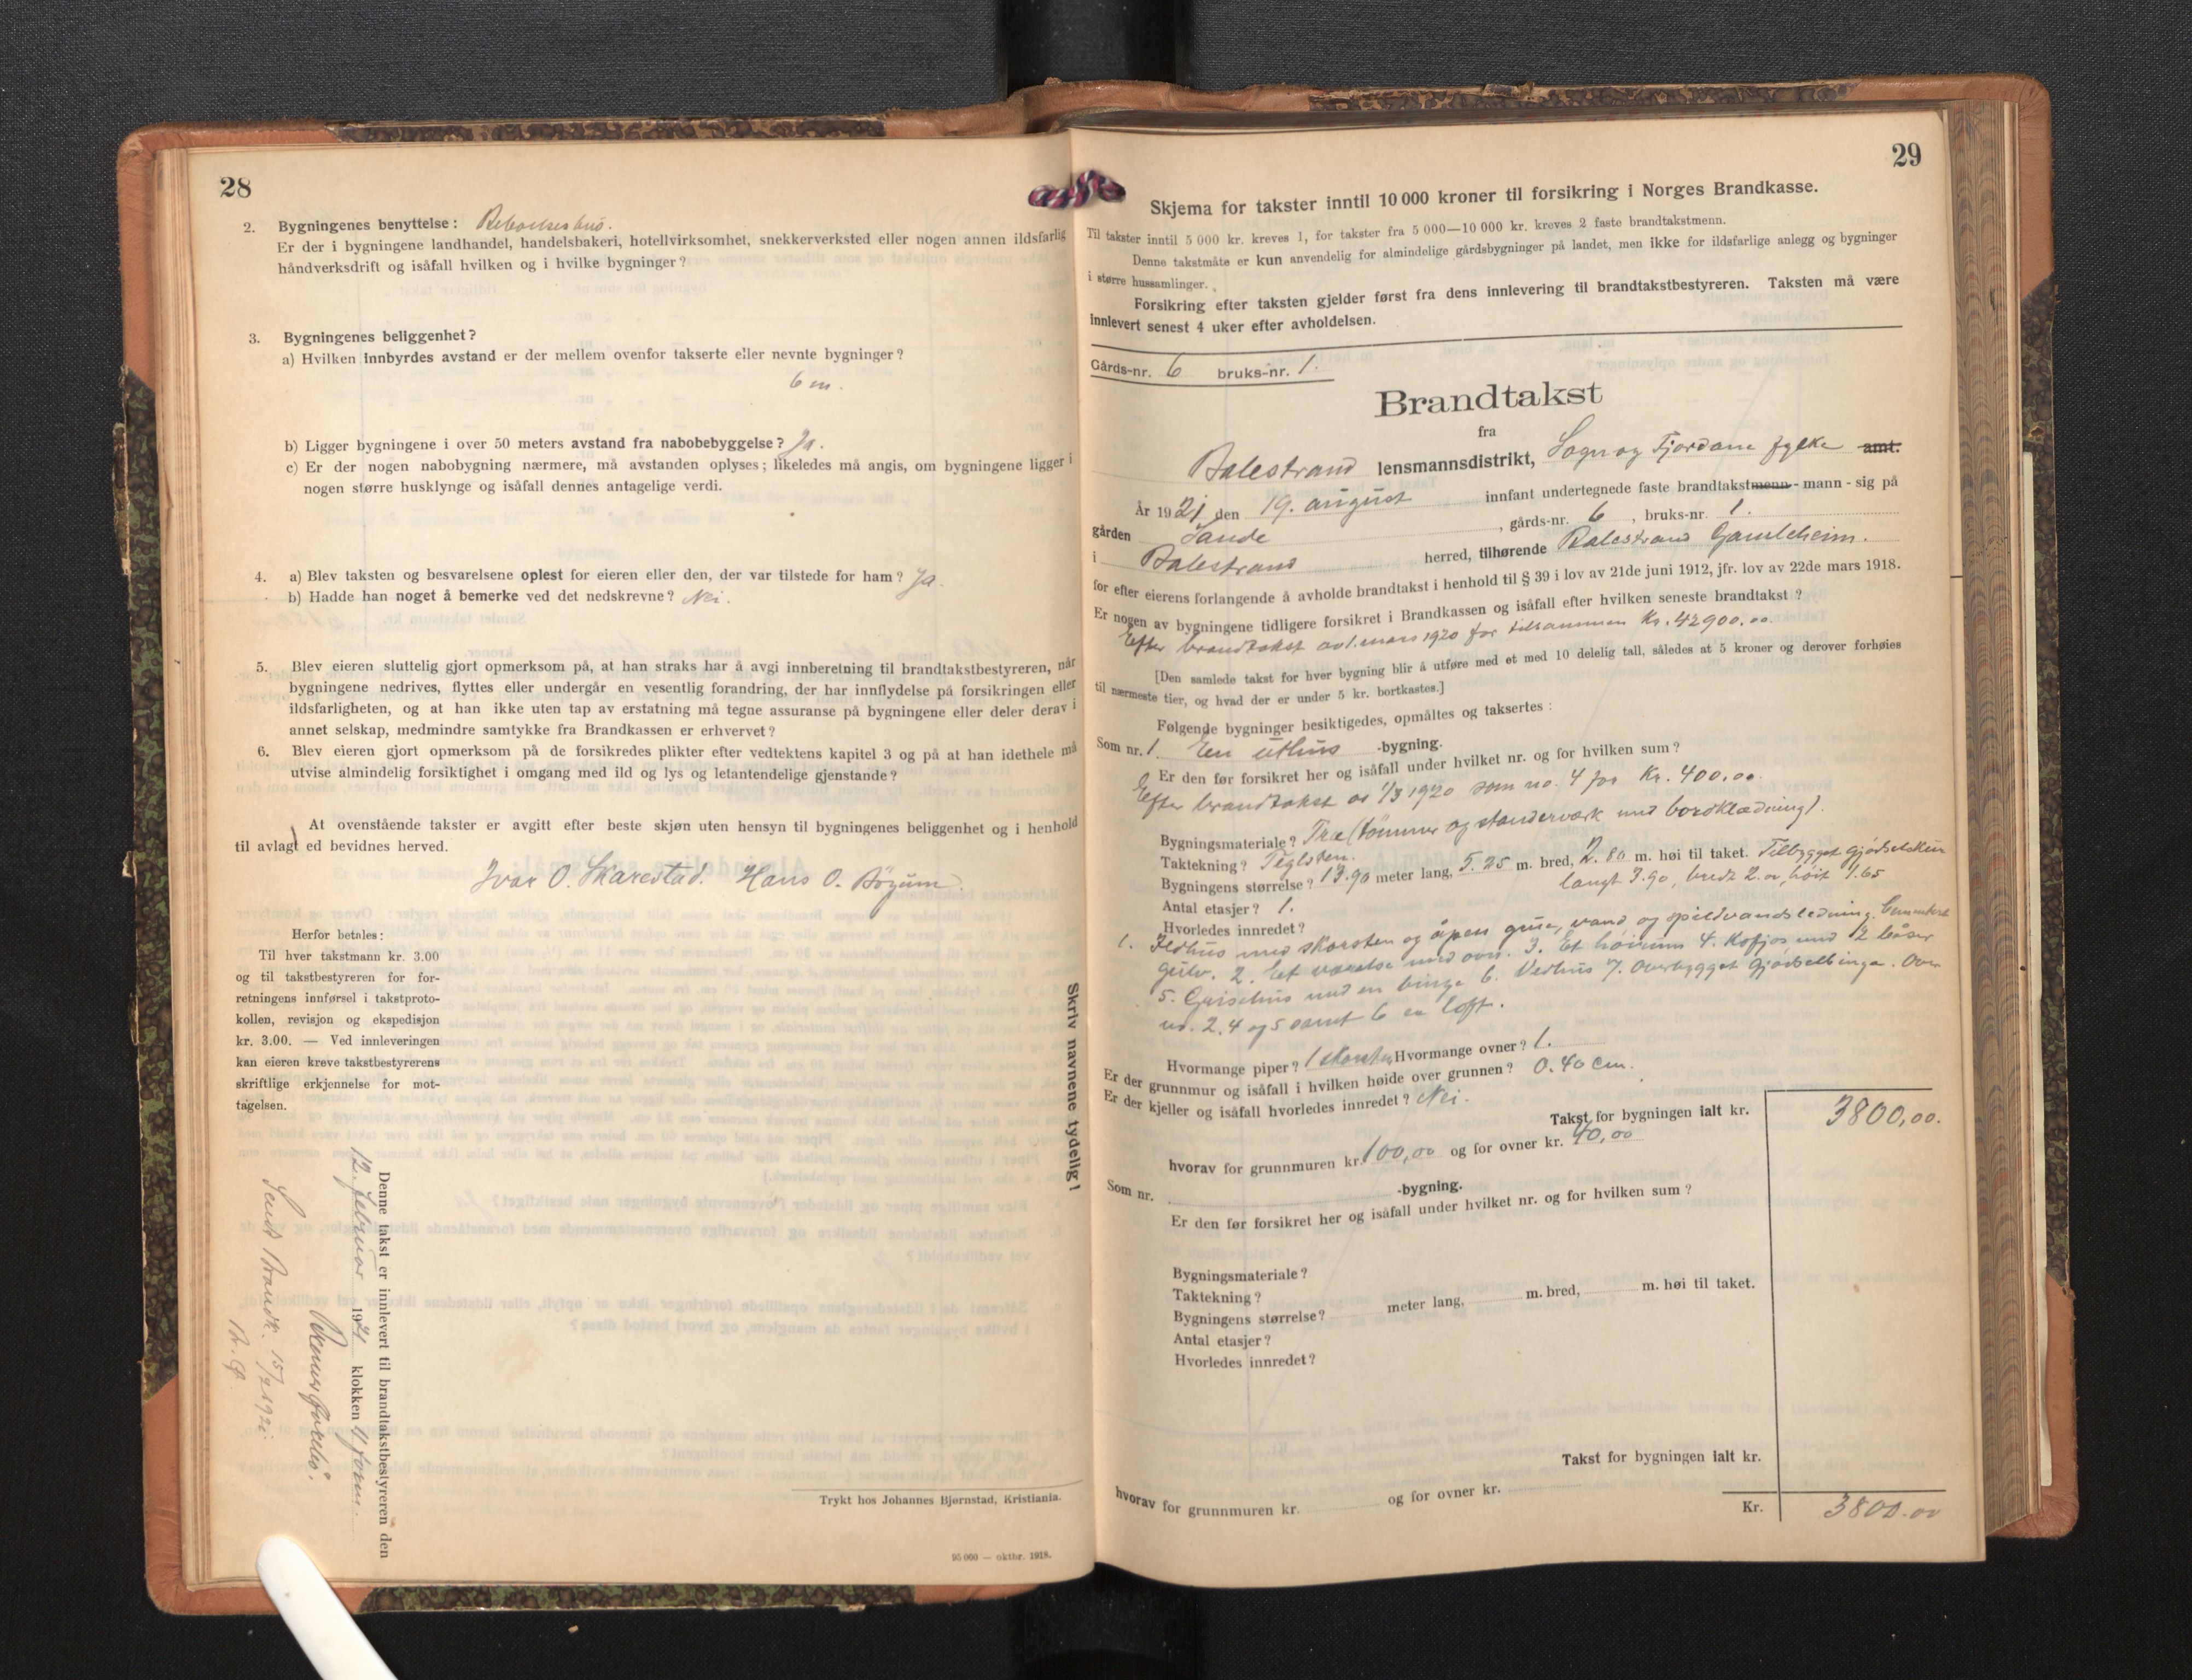 28
2. Bygningenes benyttelse: Beboelseshus.
Er der i bygningene landhandel, handelsbakeri, hotellvirksomhet, snekkerverksted eller nogen annen ildsfarlig
håndverksdrift og isåfall hvilken og i hvilke bygninger?
3. Bygningenes beliggenhet?
a) Hvilken innbyrdes avstand er der mellem ovenfor takserte eller nevnte bygninger?
6 m.
b) Ligger bygningene i over 50 meters avstand fra nabobebyggelse? Ja.
c) Er der nogen nabobygning nærmere, må avstanden oplyses; likeledes må angis, om bygningene ligger i
nogen større husklynge og isåfall dennes antagelige verdi.
4. a) Blev taksten og besvarelsene oplest for eieren eller den, der var tilstede for ham? Ja.
b) Hadde han noget å bemerke ved det nedskrevne? Nei.
5. Blev eieren sluttelig gjort opmerksom på, at han straks har å avgi innberetning til brandtakstbestyreren, når
bygningene nedrives, flyttes eller undergår en vesentlig forandring, der har innflydelse på forsikringen eller
ildsfarligheten, og at han ikke uten tap av erstatning må tegne assuranse på bygningene eller deler derav i
annet selskap, medmindre samtykke fra Brandkassen er erhvervet?
6. Blev eieren gjort opmerksom på de forsikredes plikter efter vedtektens kapitel 3 og på at han idethele må
utvise almindelig forsiktighet i omgang med ild og lys og letantendelige gjenstande?
At ovenstående takster er avgitt efter beste skjøn uten hensyn til bygningenes beliggenhet og i henhold
til avlagt ed bevidnes herved.
Ivar O. Skarestad. Hans O. Bøyum.
Herfor betales:
Til hver takstmann kr. 3.00
og til takstbestyreren for for-
retningens innførsel i takstproto-
kollen, revisjon og ekspedisjon
kr. 3.00. — Ved innleveringen
kan eieren kreve takstbestyrerens
skriftlige erkjennelse for mot-
tagelsen.
Skriv navnene tydelig!
Denne takst er innlevert til brandtakstbestyreren den
12. februar 1921 klokken 11 form.
Sendt Brandk. 15/2 1921.
Trykt hos Johannes Bjørnstad, Kristiania.
95 000 — oktbr. 1918.
29
Skjema for takster inntil 10 000 kroner til forsikring i Norges Brandkasse.
Til takster inntil 5 000 kr. kreves 1, for takster fra 5 000—10 000 kr. kreves 2 faste brandtakstmenn.
Denne takstmåte er kun anvendelig for almindelige gårdsbygninger på landet, men ikke for ildsfarlige anlegg og bygninger
i større hussamlinger.
Forsikring efter taksten gjelder først fra dens innlevering til brandtakstbestyreren. Taksten må være
innlevert senest 4 uker efter avholdelsen.
Gårds-nr. 6 bruks-nr. 1.
Brandtakst
fra
Balestrand lensmannsdistrikt, Sogn og Fjordane fylke amt.
År 1921 den 19. august innfant undertegnede faste brandtakstmenn - mann - sig på
gården Sande, gårds-nr. 6, bruks-nr. 1.
i Balestrand herred, tilhørende Balestrand Gamleheim.
for efter eierens forlangende å avholde brandtakst i henhold til § 39 i lov av 21de juni 1912, jfr. lov av 22de mars 1918.
Er nogen av bygningene tidligere forsikret i Brandkassen og isåfall efter hvilken seneste brandtakst?
Efter brandtakst av 1. mars 1920 for tilsammen Kr. 42900.00.
[Den samlede takst for hver bygning blir å utføre med et med 10 delelig tall, således at 5 kroner og derover forhøies
til nærmeste tier, og hvad der er under 5 kr. bortkastes.]
Følgende bygninger besiktigedes, opmåltes og taksertes:
Som nr. 1 En uthus -bygning.
Er den før forsikret her og isåfall under hvilket nr. og for hvilken sum?
Efter brandtakst av 1/3 1920 som no. 4 for Kr. 400.00.
Bygningsmateriale? Træ (tømmer og standerværk med bordklædning).
Taktekning? Teglsten.
Bygningens størrelse? 13.90 meter lang, 5.25 m. bred, 2.80 m. høi til taket. Tilbygget Gjødselskur
langt 3.90, bredt 2.00, høit 1.65
Antal etasjer? 1.
Hvorledes innredet?
1. Ildhus med skorsten og åpen grue, vand og spildvandsledning. Cementert
gulv. 2. Et værelse med ovn. 3. Et høirum 4. Kofjos med 2 båser
5. Grisehus med en binge 6. Vedhus 7. Overbygget Gjødselbinge. Over
no. 2. 4 og 5 samt 6 er loft.
Hvormange piper? 1 skorsten Hvormange ovner? 1.
Er der grunnmur og isåfall i hvilken høide over grunnen? 0.40 cm.
Er der kjeller og isåfall hvorledes innredet? Nei.
Takst for bygningen ialt kr. 3800,00.
hvorav for grunnmuren kr. 100,00 og for ovner kr. 40,00
Som nr. -bygning.
Er den før forsikret her og isåfall under hvilket nr. og for hvilken sum?
Bygningsmateriale?
Taktekning?
Bygningens størrelse? meter lang, m. bred, m. høi til taket.
Antal etasjer?
Hvorledes innredet?
Takst for bygningen ialt kr.
hvorav for grunnmuren kr. og for ovner kr.
Kr. 3800.00